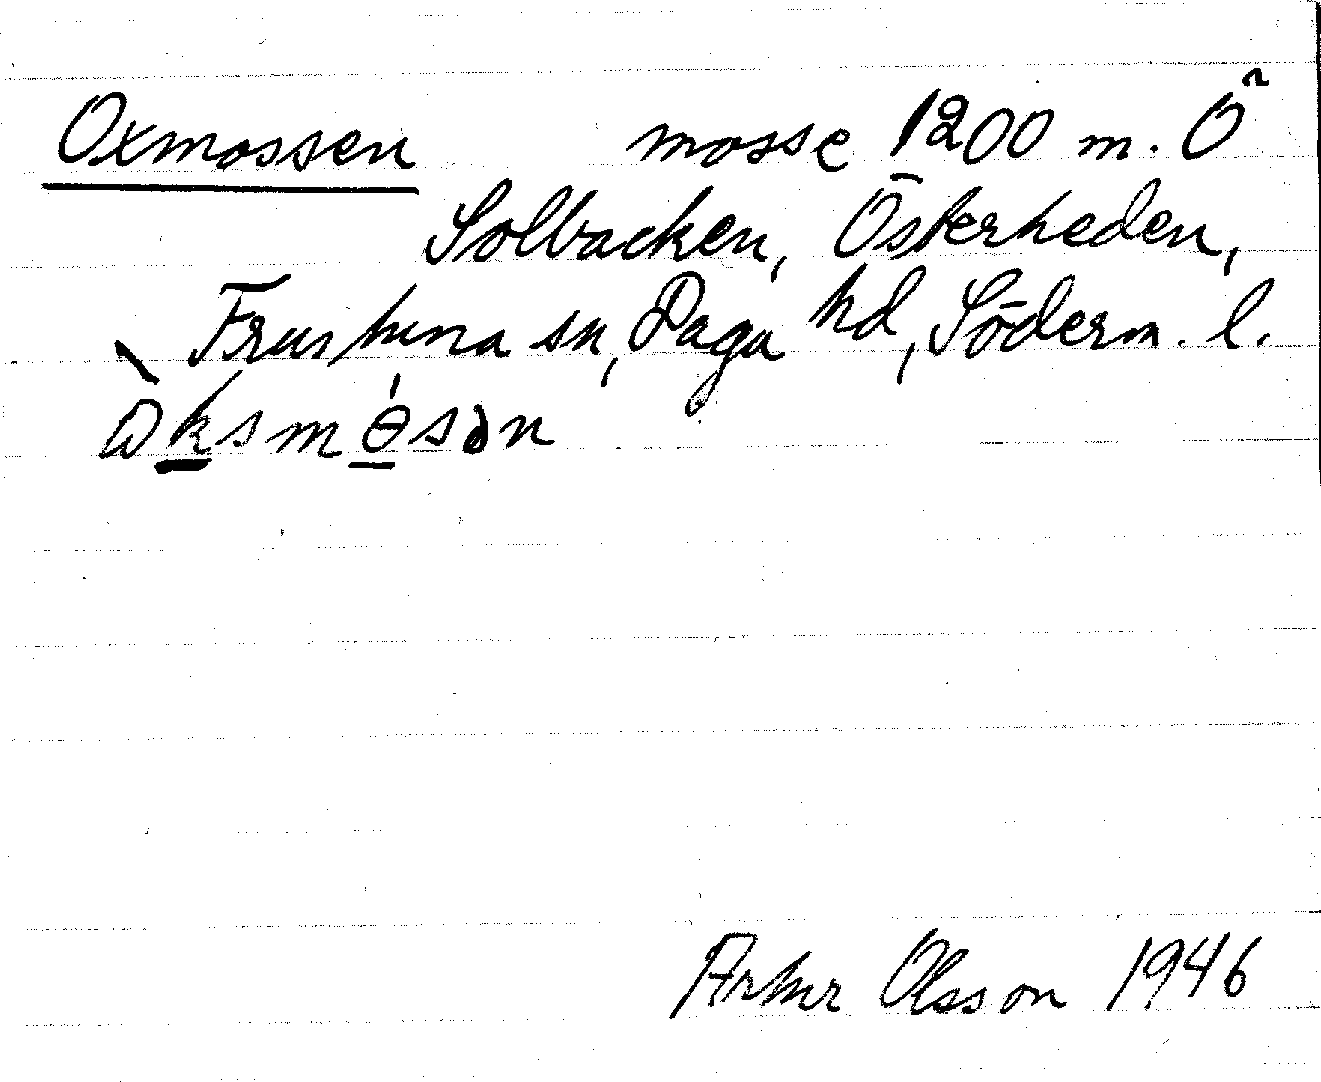 Oxmossen mosse 1200 m. Ö
Solbacken, Österheden,
Frustuna sn, Daga hd, Söderm. l.
Artur Olsson 1946